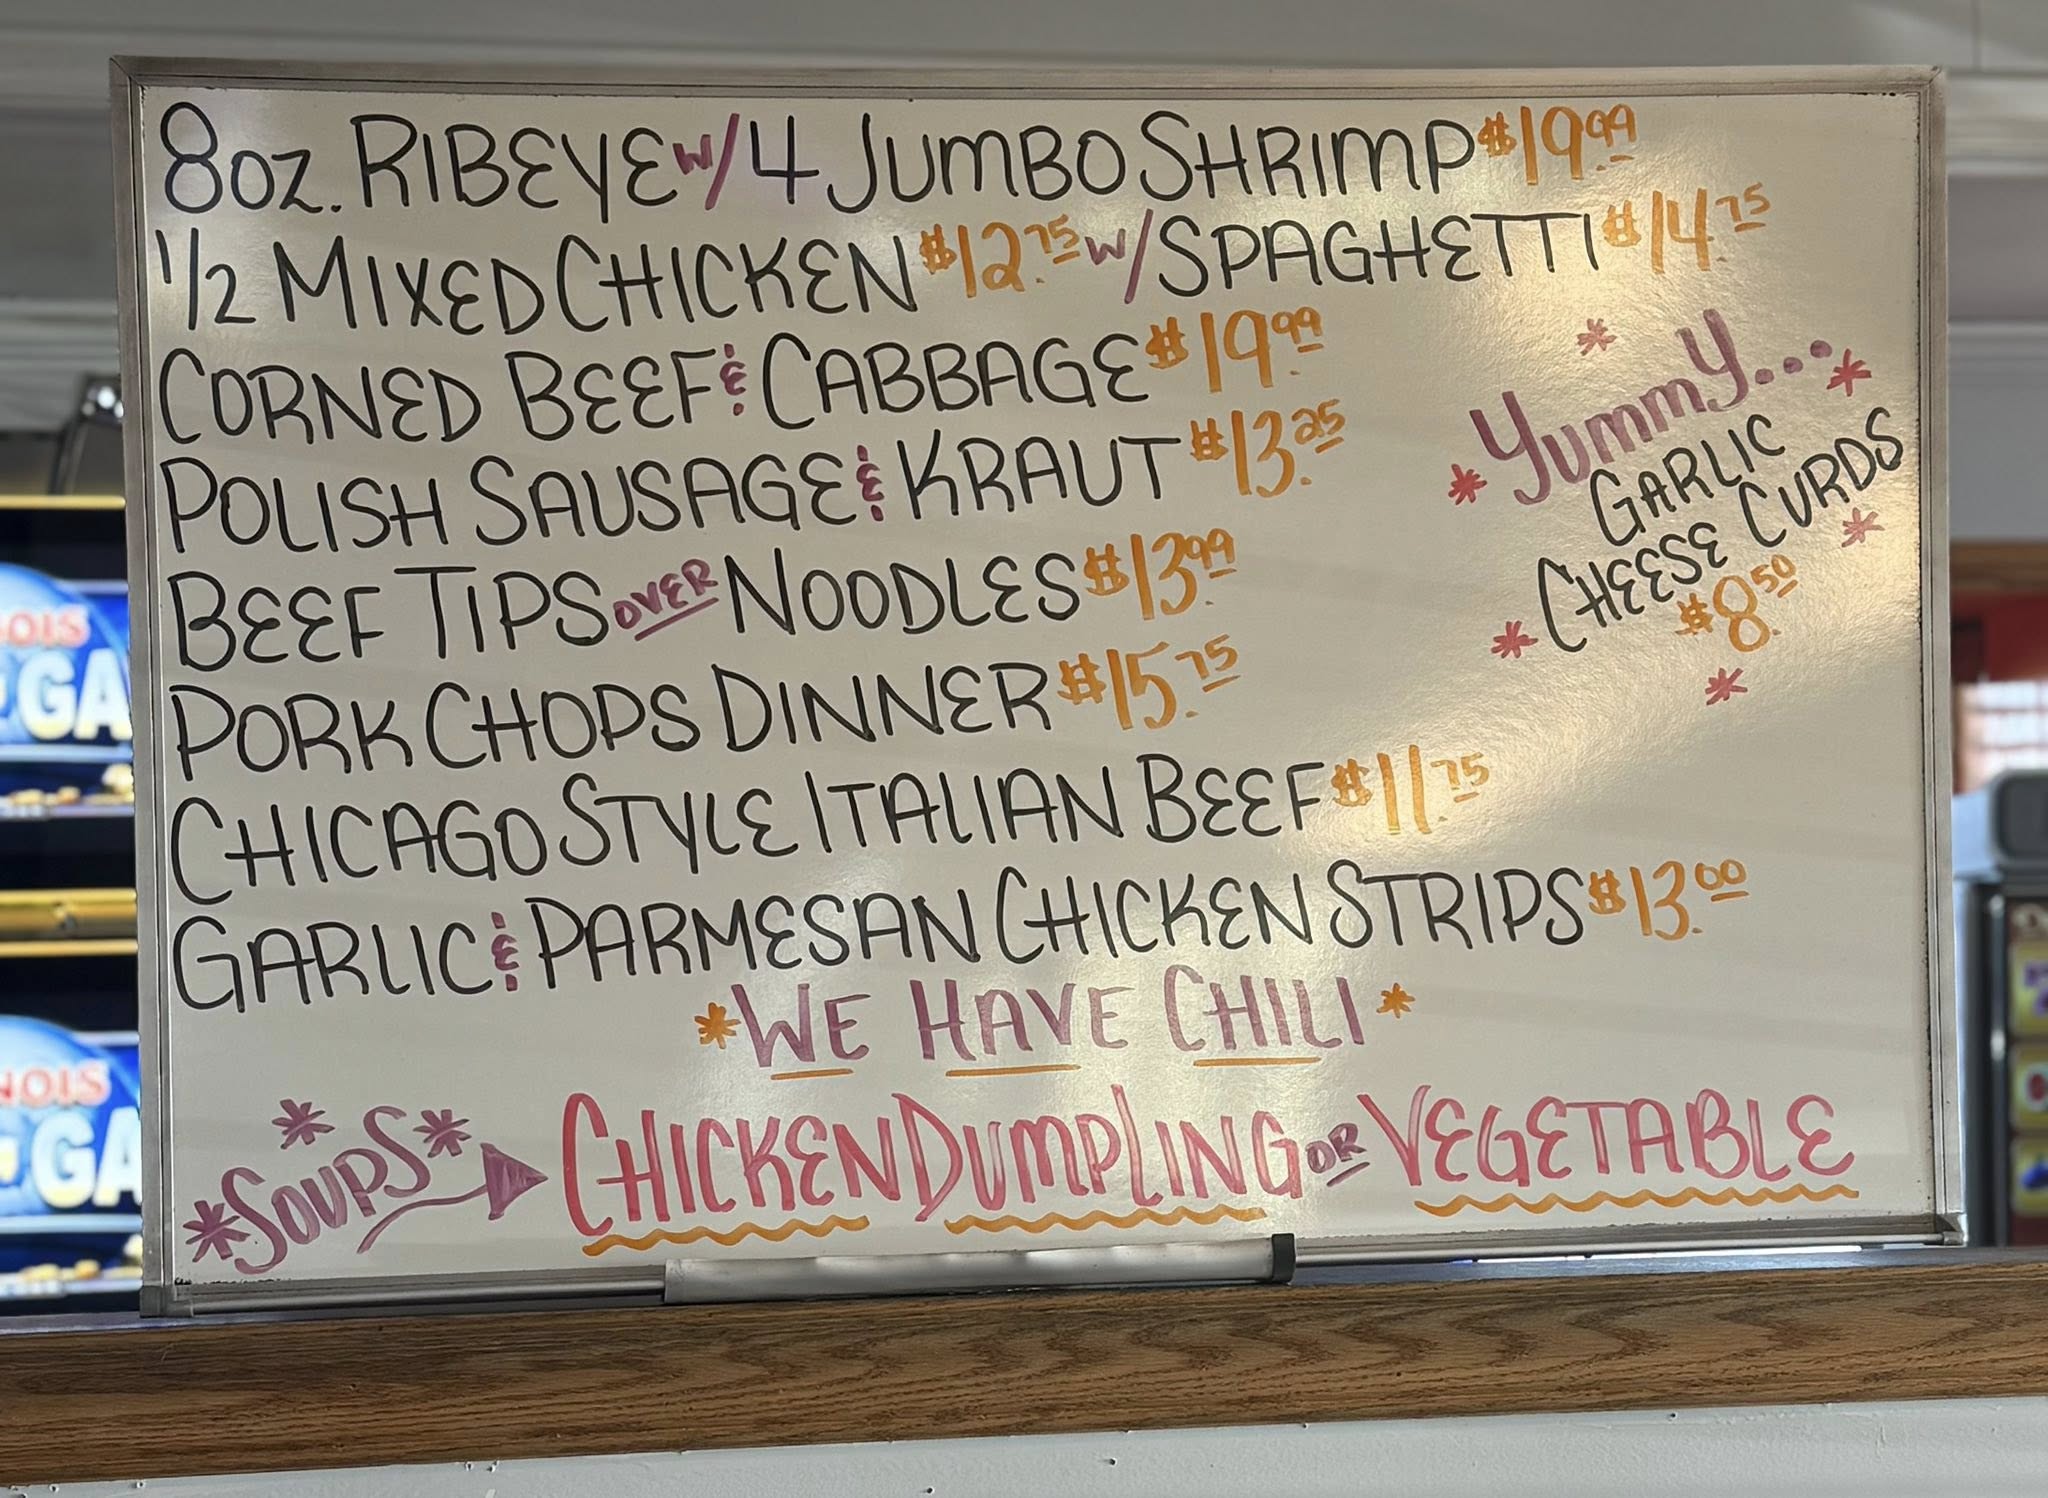 8oz. RIBEYE w/ 4 JUMBO SHRIMP $19.99
1/2 MIXED CHICKEN $12.75 w/ SPAGHETTI $14.75
CORNED BEEF & CABBAGE $19.99
POLISH SAUSAGE & KRAUT $13.25
BEEF TIPS OVER NOODLES $13.99
PORK CHOPS DINNER $15.75
CHICAGO STYLE ITALIAN BEEF $11.75
GARLIC & PARMESAN CHICKEN STRIPS $13.00
* YUMMY... *
GARLIC
CHEESE CURDS
$8.50
* WE HAVE CHILI *
* SOUPS * CHICKEN DUMPLING OR VEGETABLE
OIS
GA
NOIS
GA